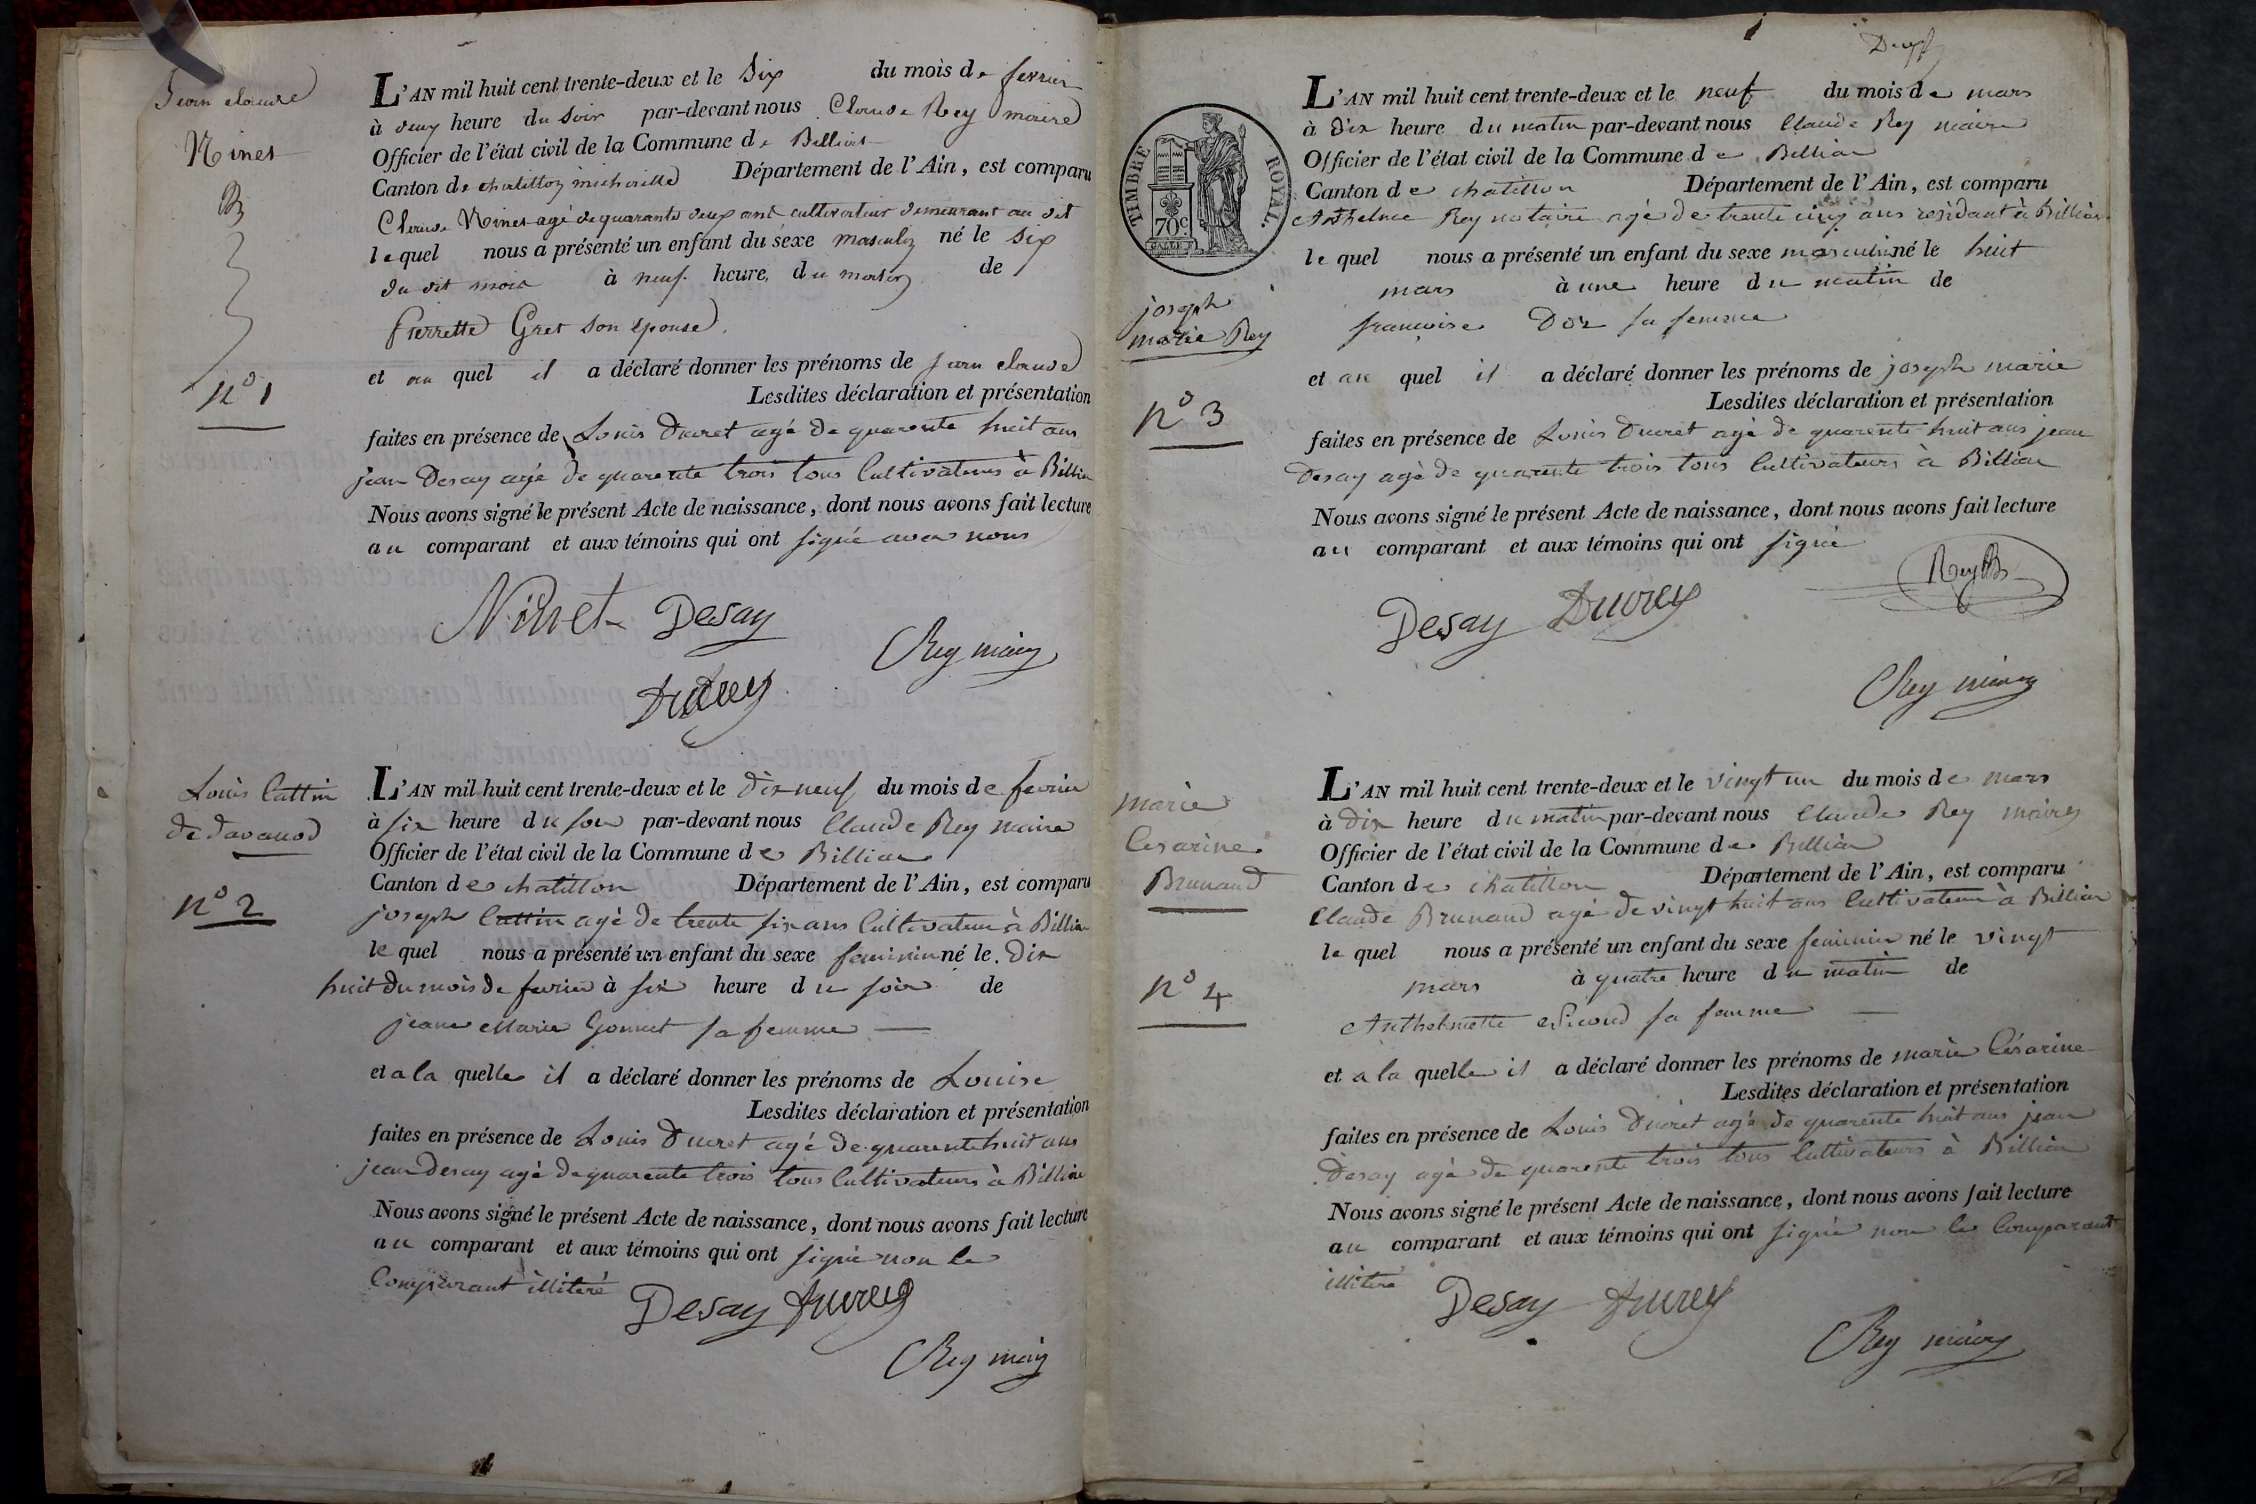 Jean claude
Ninet
n° 1
L'AN mil huit cent trente-deux et le Six du mois de fevrier
à deux heure du soir par-devant nous Claude Rey maire
Officier de l'état civil de la Commune de Billiat
Canton de chatillon michaille Département de l'Ain, est comparu
Claude Ninet agé de quarante deux ans cultivateur demeurant au dit
lequel nous a présenté un enfant du sexe masculin né le six
du dit mois à neuf heure, du matin de
Pierrette Gret son épouse
et au quel il a déclaré donner les prénoms de jean claude
Lesdites déclaration et présentation
faites en présence de Louis Ducret agé de quarente huit ans
jean Desay agé de quarente trois tous Cultivateurs à Billia
Nous avons signé le présent Acte de naissance, dont nous avons fait lecture
au comparant et aux témoins qui ont signé avec nous
Ninet Desay
Rey maire
Ducrey
Louis Cattin
de davanod
n° 2
L'AN mil huit cent trente-deux et le dix neuf du mois de fevrier
à six heure du soir par-devant nous Claude Rey maire
Officier de l'état civil de la Commune de Billiat
Canton de chatillon Département de l'Ain, est comparu
joseph Cattin agé de trente six ans Cultivateur à Billia
le quel nous a présenté un enfant du sexe feminin né le. dix
huit du mois de fevrier à six heure du soir de
jeane Marie Gonnet sa femme
et a la quelle il a déclaré donner les prénoms de Louise
Lesdites déclaration et présentation
faites en présence de Louis Ducret agé de quarente huit ans
jean desay agé de quarente trois tous Cultivateurs à Billia
Nous avons signé le présent Acte de naissance, dont nous avons fait lecture
au comparant et aux témoins qui ont signé non le
Comparant illiteré
Desay Ducrey
Rey maire
TIMBRE ROYAL.
70c.
joseph
marie Rey
n° 3
L'AN mil huit cent trente-deux et le neuf du mois de mars
à dix heure du matin par-devant nous Claude Rey maire
Officier de l'état civil de la Commune de Billiat
Canton de chatillon Département de l'Ain, est comparu
Anthelme Rey notaire agé de trente cinq ans residant à Billiat
le quel nous a présenté un enfant du sexe masculin né le huit
mars à une heure du matin de
françoise Doz sa femme
et au quel il a déclaré donner les prénoms de joseph marie
Lesdites déclaration et présentation
faites en présence de Louis Ducret agé de quarente huit ans jean
Desay agé de quarente trois tous Cultivateurs à Billiat
Nous avons signé le présent Acte de naissance, dont nous avons fait lecture
au comparant et aux témoins qui ont signé
Rey
Desay Ducrey
Rey maire
marie
Cesarine
Brunaud
n° 4
L'AN mil huit cent trente-deux et le vingt un du mois de mars
à dix heure du matin par-devant nous Claude Rey maire
Officier de l'état civil de la Commune de Billiat
Canton de chatillon Département de l'Ain, est comparu
Claude Brunaud agé de vingt huit ans Cultivateur à Billiat
le quel nous a présenté un enfant du sexe feminin né le vingt
mars à quatre heure du matin de
Anthelmette sa femme
et a la quelle il a déclaré donner les prénoms de marie Césarine
Lesdites déclaration et présentation
faites en présence de Louis Ducret agé de quarente huit ans jean
Desay agé de quarente trois tous Cultivateurs à Billiat
Nous avons signé le présent Acte de naissance, dont nous avons fait lecture
au comparant et aux témoins qui ont signé non le Comparant
illiteré
Desay Ducrey
Rey maire